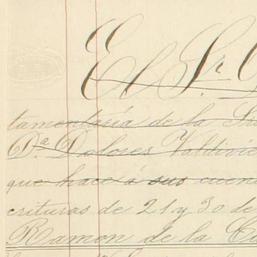 El Sr.
tamentería de la
Da. Dolores Valdivie
que hace á sus cuen
crituras de 21 y 30 de
Ramon de la